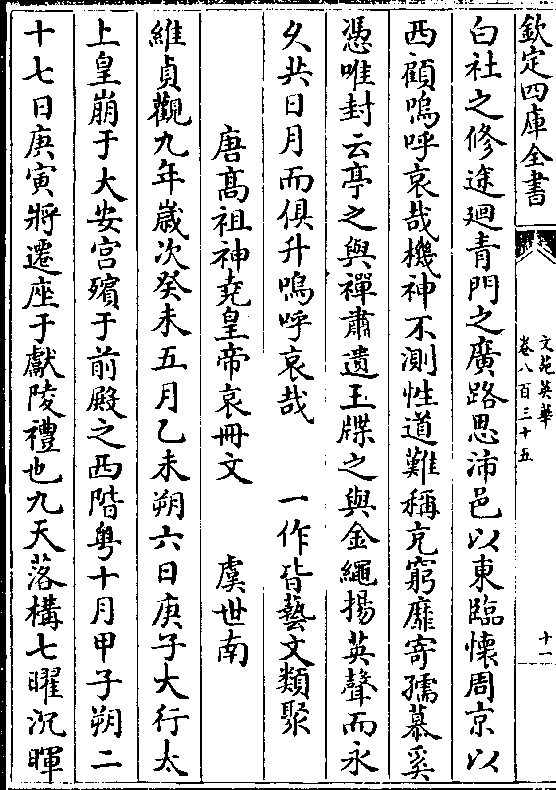 欽定四庫全書
文苑英華
卷八百三十五
十一
白社之修途廻青門之廣路思沛邑以東臨懷周京以
西顧嗚呼哀哉機神不測性道難稱充窮靡寄孺慕奚
憑唯封云亭之與禪肅遺玉牒之與金繩揚英聲而永
久共日月而俱升嗚呼哀哉 一作皆藝文類聚
唐髙祖神堯皇帝哀冊文 虞世南
維貞觀九年嵗次癸未五月乙未朔六日庚子大行太
上皇崩于大安宫殯于前殿之西階粤十月甲子朔二
十七日庚寅將遷座于獻陵禮也九天落構七曜沉暉